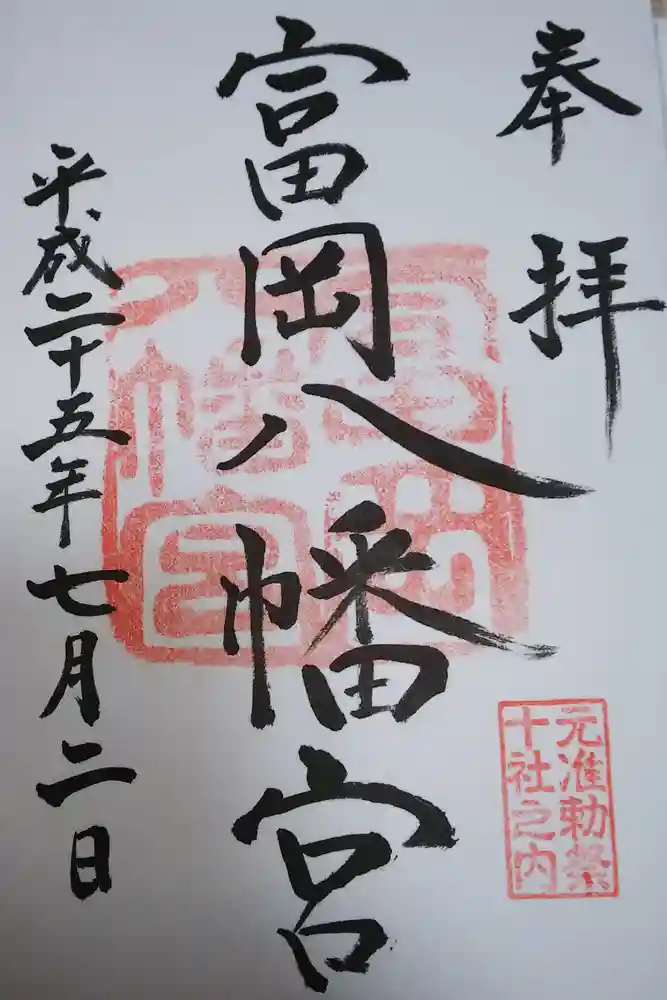 奉拝
富岡八幡宮
平成二十五年七月二日
富岡
八幡宮
元准勅祭
十社之内